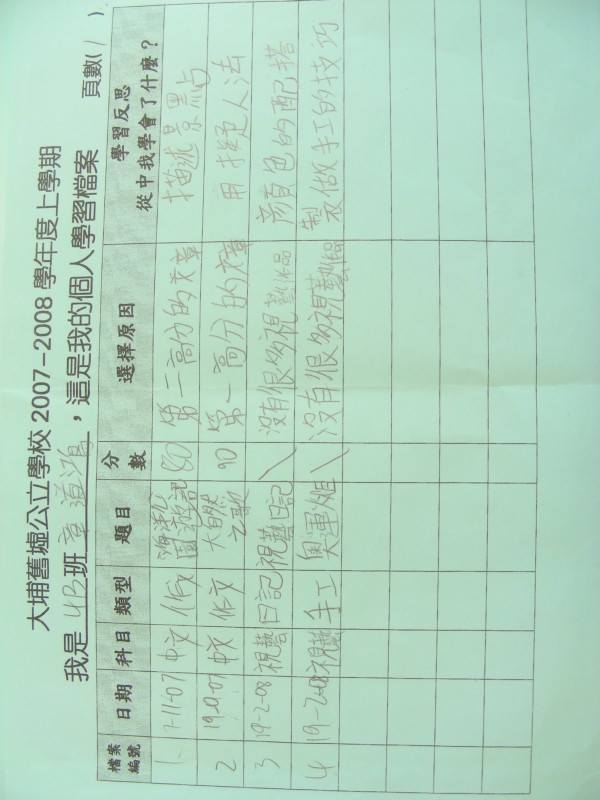 大埔舊墟公立學校 2007-2008 學年度上學期
我是 4B 班 章道鴻 ，這是我的個人學習檔案 頁數( 1 )
檔案編號 日期 科目 類型 題目 分數 選擇原因 學習反思 從中我學會了什麼？
1. 7-11-07 中文 作文 海洋公園遊記 80 第二高分的文章 描述景點
2 中文 作文 大自然之歌 90 第一高分的文章 用擬人法
3 19-2-08 視藝 日記 視藝日記 \ 沒有很多視藝作品 顏色的配搭
4 19-2-08 視藝 手工 奧運火炬 \ 沒有很多視藝作品 製做手工的技巧